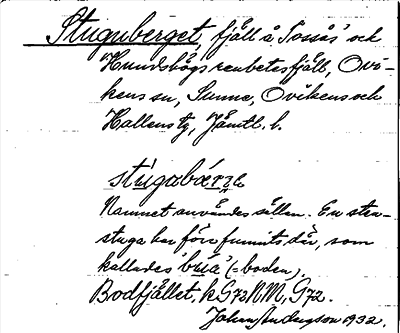 Stuguberget, fjäll å Tossås' och
Hundshögs renbetesfjäll, Ovi-
kens sn, Sunne, Ovikens och
Hallens tg, Jämtl. l.
stúgabǽrʒe
Namnet användes sällan. En sten-
stuga har förr funnits där, som
kallades 'búa' (=boden).
Bodfjället, k G72 NM, G72.
Johan Andersson 1932.